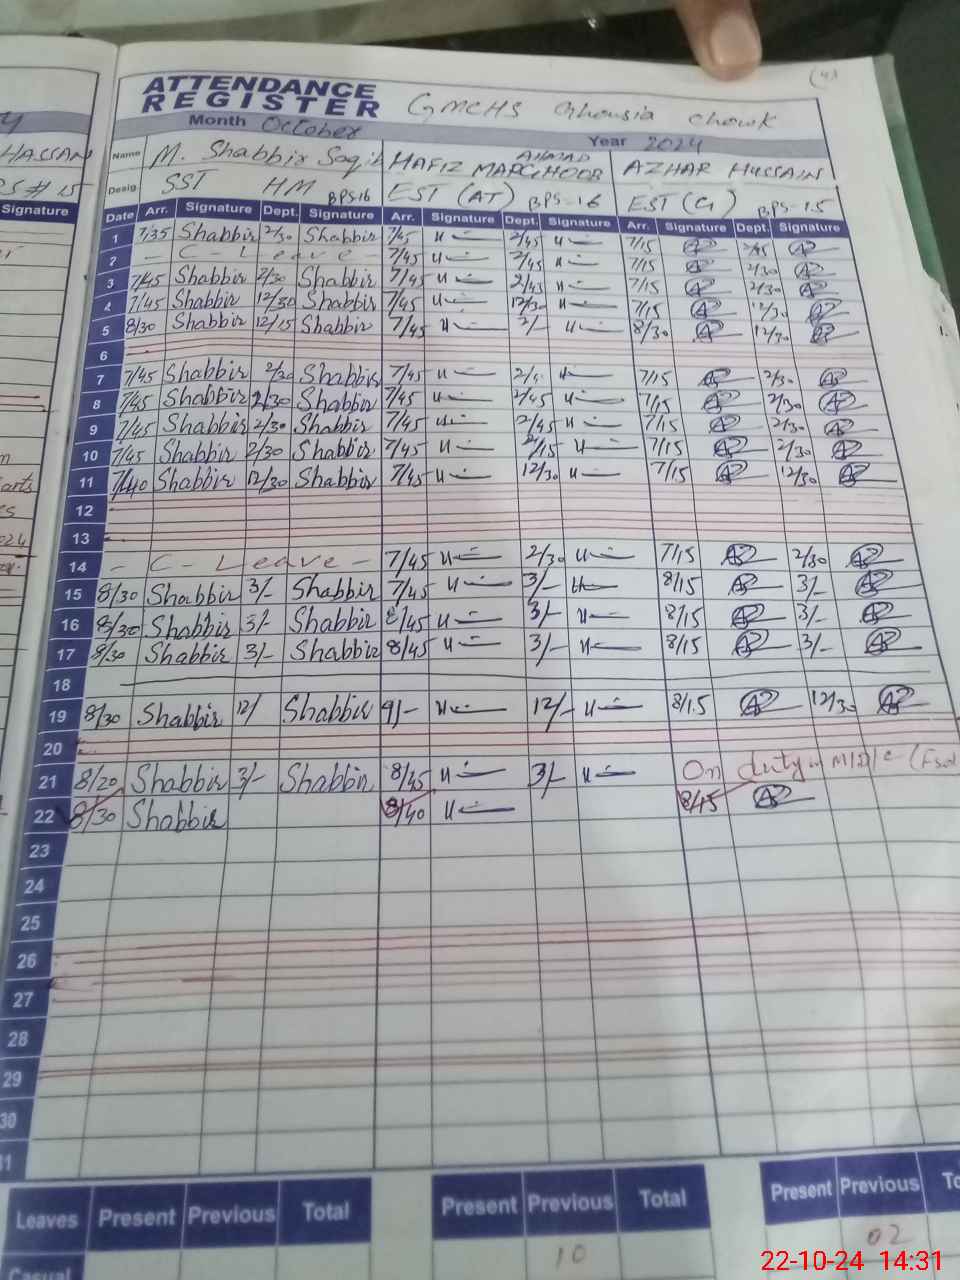 (4)
ATTENDANCE
REGISTER GMCHS Ghousia Chowk
Month October Year 2024
HASSAN Name M. Shabbir Saqib HAFIZ AHMAD AZHAR HUSSAIN
Desig. SST HM BPS-16 EST (AT) BPS-16 EST (G) BPS-15
Signature Date Arr. Signature Dept. Signature Arr. Signature Dept. Signature Arr. Signature Dept. Signature
1 7/35 Shabbir 2/30 Shabbir 7/45 2/45 7/15 2/45
2 - C - Leave - 7/45 2/45 7/15 2/30
3 7/45 Shabbir 2/30 Shabbir 7/45 2/45 7/15 2/30
4 7/45 Shabbir 12/30 Shabbir 7/45 12/30 7/15 12/30
5 8/30 Shabbir 12/15 Shabbir 7/45 2/- 8/30 12/30
6
7 7/45 Shabbir 2/30 Shabbir 7/45 7/15 2/30
8 7/45 Shabbir 2/30 Shabbir 7/45 2/45 7/15 2/30
9 7/45 Shabbir 2/30 Shabbir 7/45 2/45 7/15 2/30
10 7/45 Shabbir 2/30 Shabbir 7/45 2/15 7/15 2/30
11 7/40 Shabbir 12/30 Shabbir 7/45 12/30 7/15 12/30
12
13
14 - C - Leave - 7/45 2/30 7/15 2/30
15 8/30 Shabbir 3/- Shabbir 7/45 3/- 8/15 3/-
16 8/30 Shabbir 3/- Shabbir 8/45 3/- 8/15 3/-
17 8/30 Shabbir 3/- Shabbir 8/45 3/- 8/15 3/-
18
19 8/30 Shabbir 12/ Shabbir 9/- 12/- 8/15 12/30
20
21 8/20 Shabbir 3/- Shabbir 8/45 3/- On duty
22 8/30 Shabbir 8/40 8/45
23
24
25
26
27
28
29
30
31
Leaves Present Previous Total Present Previous Total Present Previous
Casual 10 02
22-10-24 14:31